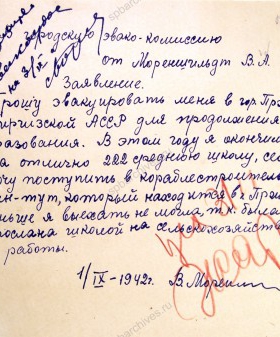 на 3/IX
городскую эвако-комиссию
от Мореншильдт В. А.
Заявление.
рошу эвакуировать меня в гор. Прж
иргизской АССР для продолжения
разования. В этом году я окончил
на отлично 222 среднюю школу, се
очу поступить в кораблестроител
н-тут, который находится в г. Прж
ньше я выехать не могла, т. к. была
послана школой на сельскохозяйств
работы.
1/IX-1942г. В. Морен
spbarchives.ru